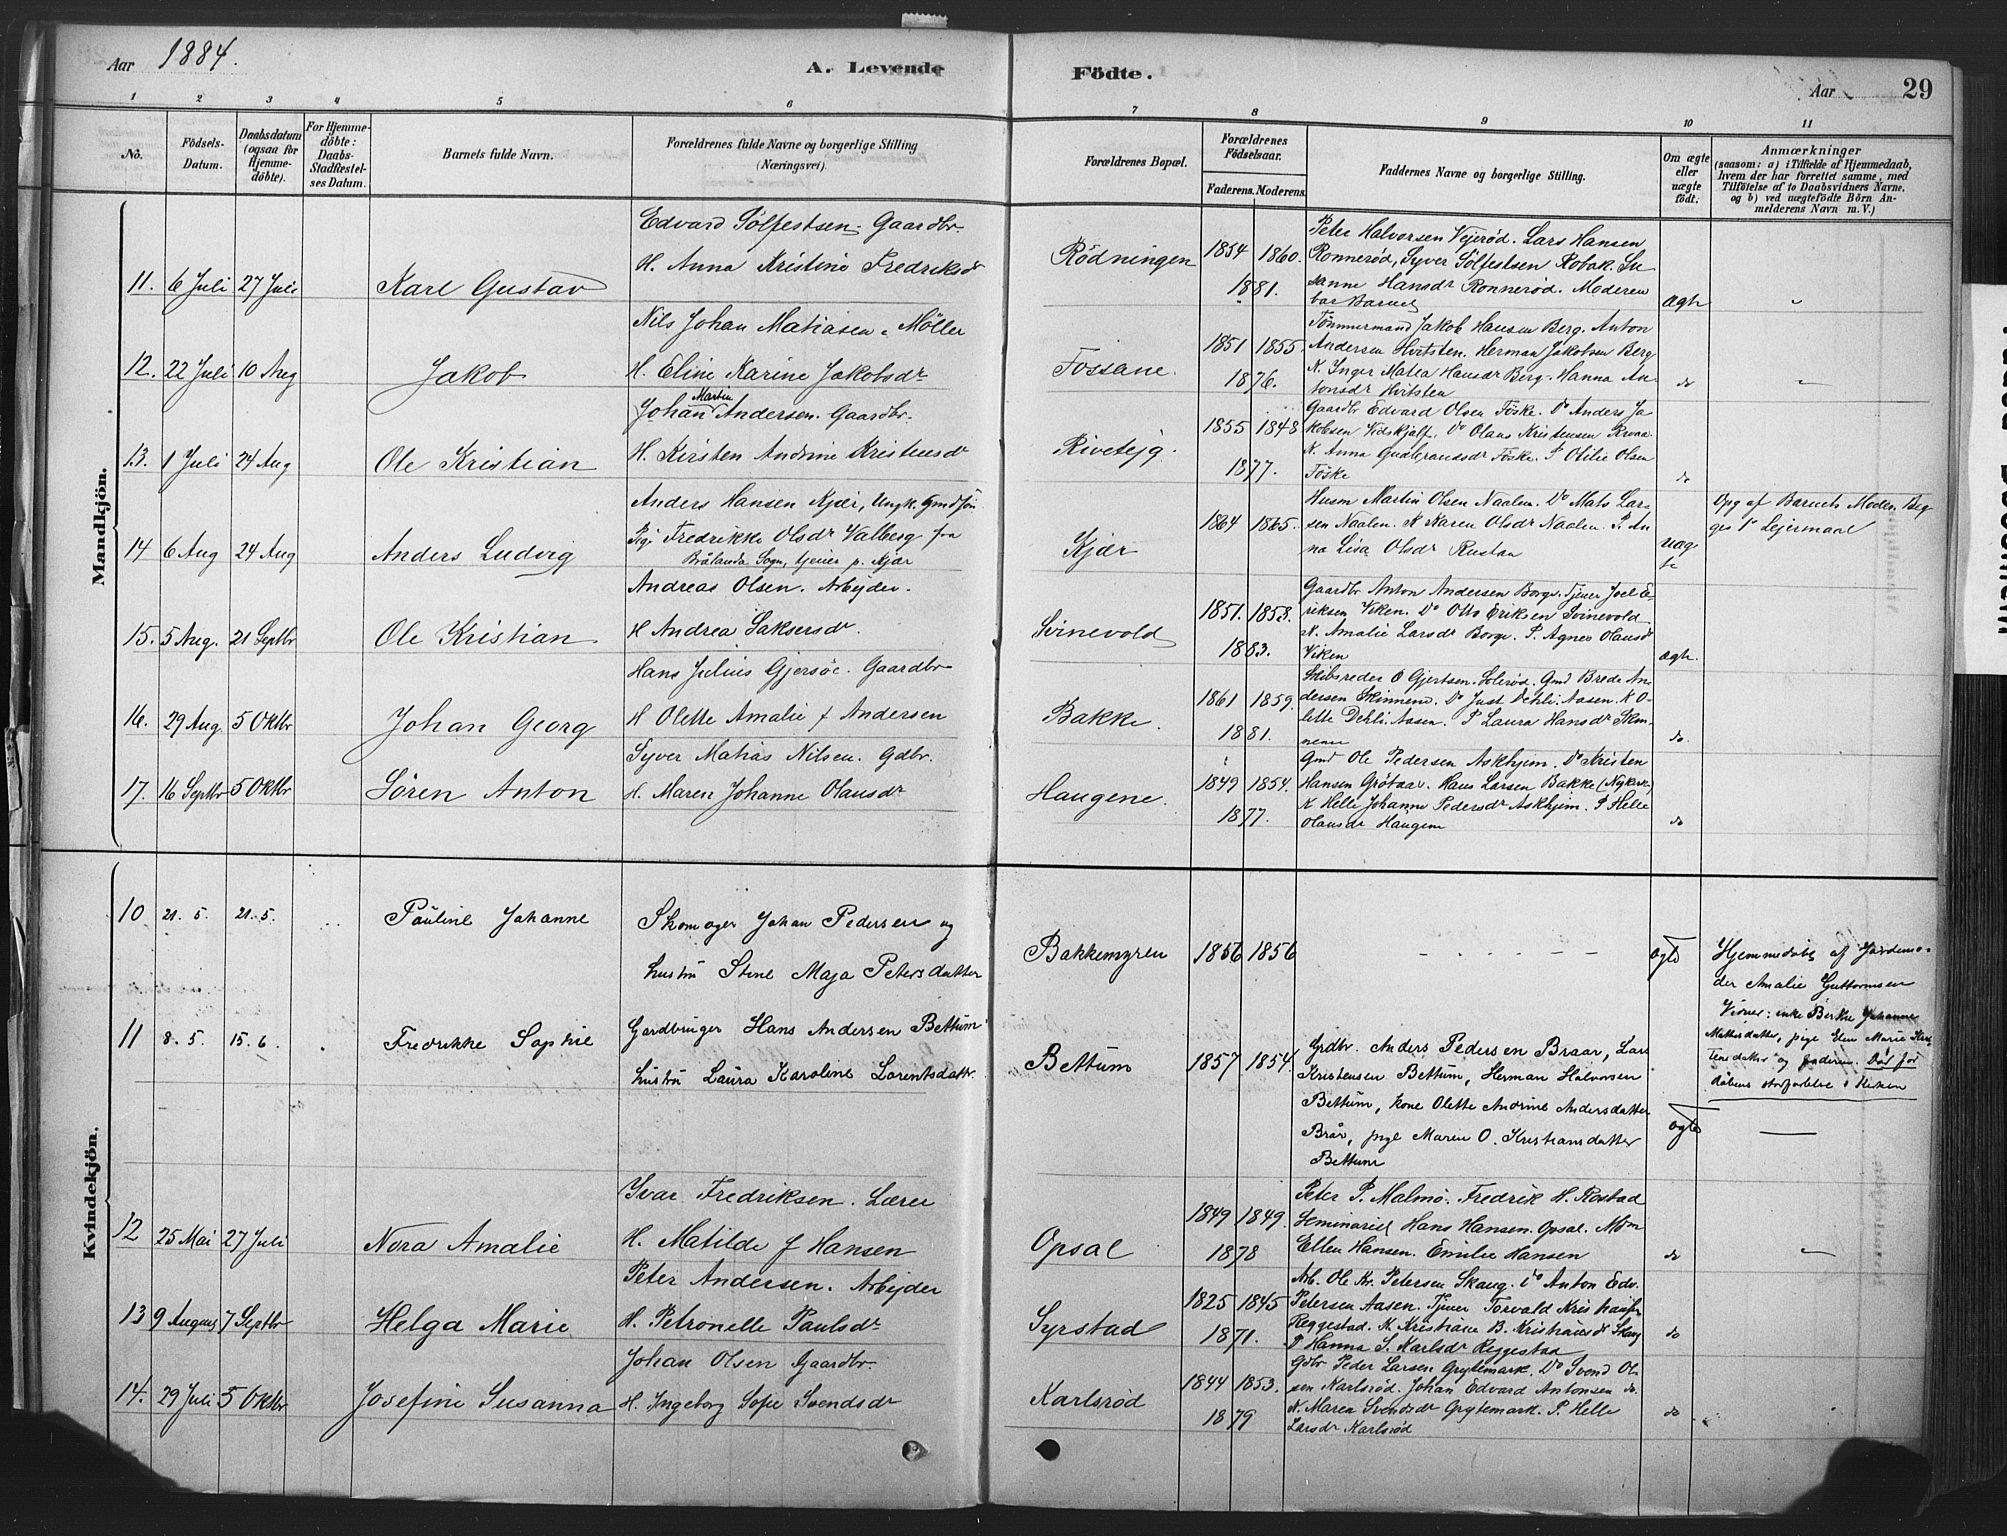 Aar 1884. A. Levende Födte. Aar 29
1 2 3 4 5 6 7 8 9 10 11
No. Födsels-Datum. Daabsdatum (ogsaa for Hjemmedöbte). For Hjemmedöbte: Daabs-Stadfæstelses Datum. Barnets fulde Navn. Forældrenes fulde Navne og borgerlige Stilling (Næringsvei). Forældrenes Bopæl. Forældrenes Födselsaar. Faderens. Moderens. Faddernes Navne og borgerlige Stilling. Om ægte eller uægte födt. Anmærkninger (saasom: a) i Tilfælde af Hjemmedaab, hvem der har forrettet samme, med Tilföielse af to Daabsvidners Navne, og b) ved uægtefödte Börn Anmelderens Navn m. V.)
Mandkjön.
Edvard Sölfestsen. Gaardbr.
11. 6 Juli 27 Juli Karl Gustav H. Anna Kristine Fredriksdr
Rödningen 1854 1860. 1881.
Peter Halvorsen Vejeröd. Lars Hansen
Ronneröd, Syver Sölfestsen Robak. Su
sanne Hansdr Ronneröd. Moderen
bar Barnet
Ægte "
Nils Johan Matiasen. Möller
12. 22 Juli 10 Aug Jakob H. Eline Karine Jakobsdr
Fossane. 1851 1855. 1876.
Tömmermand Jakob Hansen Berg. Anton
Andersen Hvitsten. Herman Jakobsen Berg
K. Inger Matea Hansdr Berg. Hanna An-
tonsdr Hvitsten
do "
Johan Martin Andersen. Gaardbr.
13. 1 Juli 24 Aug Ole Kristian H. Kirsten Andrine Kristensdr
1855 1848 1877.
Gaardbr Edvard Olsen Föske. Do Anders Ja
kobsen Vidskjalf. Do Olaus Kristensen
K. Anna Gudbrandsdr Föske. P Otilie Olsen
Föske
do
Anders Hansen Kjær, Ungk. Gmdsön
14 6 Aug 24 Aug Anders Ludvig Pige Fredrikke Olsdr Valberg fra
Brålanda Sogn, tjener p. Kjær
Kjær 1864 1865.
Husm Martin Olsen Naalen. Do Mats Lar-
sen Naalen. K Karen Olsdr Naalen. P. An
na Lisa Olsdr Rustan
uæg
te
Opg af Barnets Moder. Beg
ges 1ste Lejermaal
Andreas Olsen. Arbejder.
15. 5 Aug. 21 Septbr Ole Kristian H Andrea Saksersdr.
Svinevold 1851. 1858. 1883.
Gaardbr Anton Andersen Borge. Tjener Joel E-
riksen Viken. Do Otto Eriksen Svinevold
K. Amalie Larsdr Borge. P. Agnes Olausdr
Viken
ægte.
Hans Julius Gjersöe. Gaardbr
16. 29 Aug. 5 Oktbr Johan Georg H Olette Amalie f Andersen
Bakke. 1861 1859. 1881.
Skibsreder O Gjertsen. Solerød. Gmd Brede An-
dersen Skinnene. Do Just Dehli. Aasen. K O-
lette Dehli. Aasen. P Laura Hansdr Skin-
nene
do.
Syver Matias Nilsen. Gdbr.
17. 16 Septbr 5 Oktbr Sören Anton H. Maren Johanne Olausdr
Haugene. 1849 1854. 1877.
Gmd Ole Pedersen Askhjem. Do Kristen
Hansen Gröbaar. Hans Larsen Bakke (Nykirke)
K Helle Johanne Pedersdr Askhjem. P Helle
Olausdr Haugene
do
Kvindekjön.
10 21. 5. 21. 5. Pauline Johanne Skomager Johan Pedersen og
hustru Stine Maja Petersdatter
Bakkemyren 1856 1856 Ægte
Hjemmedöbt af Jordemo-
der Amalie Guttormsen
Vidner: enke Berthe Johanne
Mathisdatter, pige Elen Marie Kris
tensdatter og faderen. Död för
dåbens stadfæstelse i Kirken
11 8. 5. 15. 6. Fredrikke Sophie Gardbruger Hans Andersen Bettum
hustru Laura Karoline Lorentsdatter.
Bettum 1857 1854.
Grdbr. Anders Pedersen Braar, Lars
Kristensen Bettum, Herman Halvorsen
Bettum, kone Olette Andrine Andersdatter
Brår, pige Maren O. Kristiansdatter
Bettum
Ægte —
Ivar Fredriksen. Lærer
12 25 Mai 27 Juli Nora Amalie H. Matilde f Hansen
Opsal 1849 1849. 1878
Peter P. Malmö. Fredrik H. Rostad
Seminariet Hans Hansen. Opsal.
Ellen Hansen. Emilie Hansen
do "
Peter Andersen. Arbejder
13 9 August 7 Septbr Helga Marie H. Petronelle Paulsdr
Syrstad 1825 1845 1871.
Arb. Ole Kr. Petersen Skaug. Do Anton Edv.
Petersen Aasen. Tjener Torvald Kristiansen
Reggestad. K. Kristiane B. Kristiansdr Skaug
P Hanna S. Karlsdr Reggestad
do
Johan Olsen Gaardbr.
14. 29 Juli 5 Oktbr Josefine Susanna H. Ingeborg Sofie Svendsdr
Karlsröd 1844 1853. 1879
Gdbr Peder Larsen Grytemark. Do Svend Ol-
sen Karlsröd. Johan Edvard Antonsen do.
K. Maren Svendsdr Grytemark. P. Helle
Larsdr Karlsröd
do